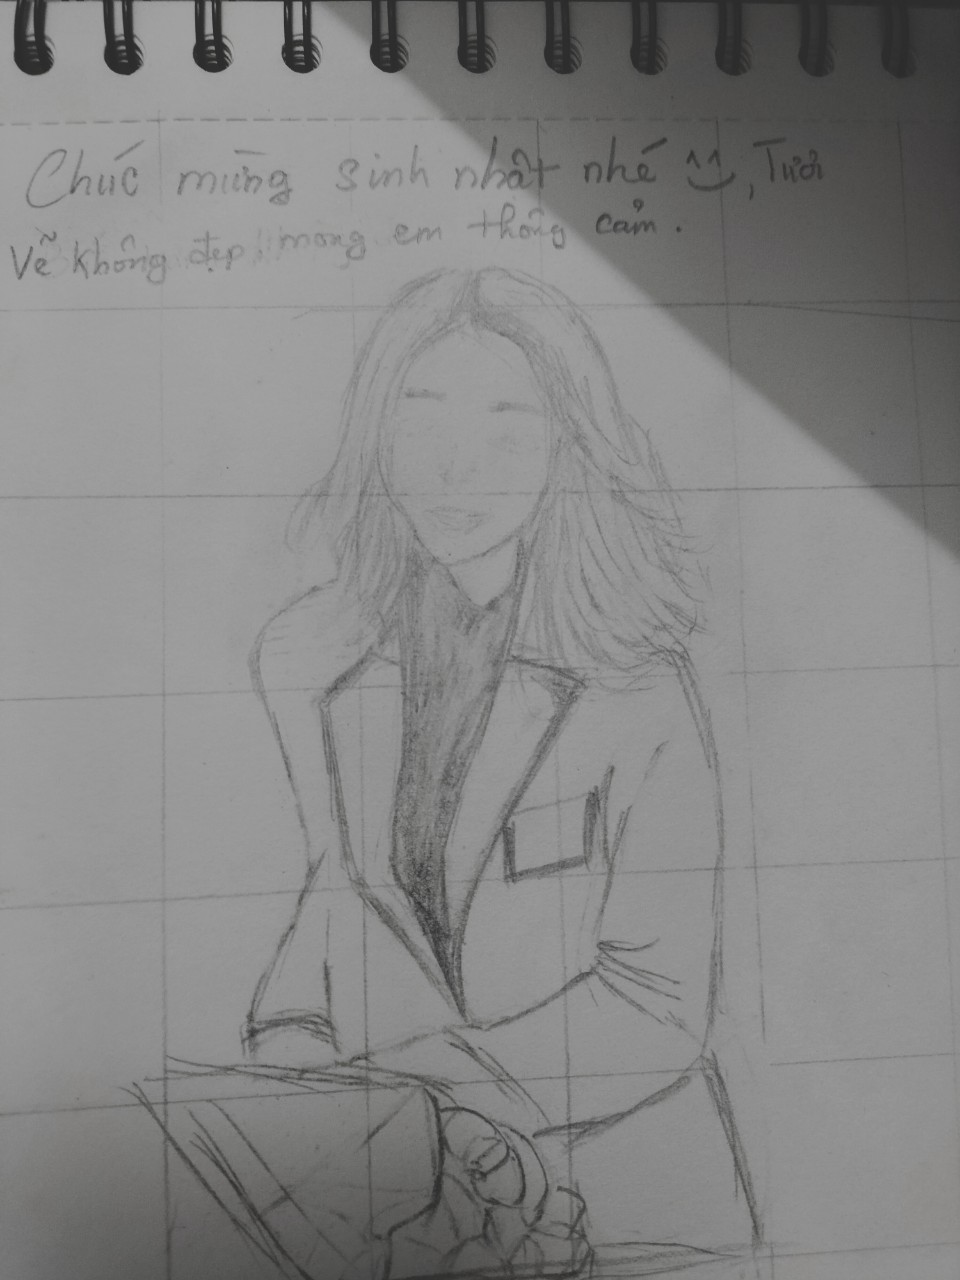 Chúc mừng sinh nhật nhé ^^, Tươi
Vẽ không đẹp, mong em thông cảm.